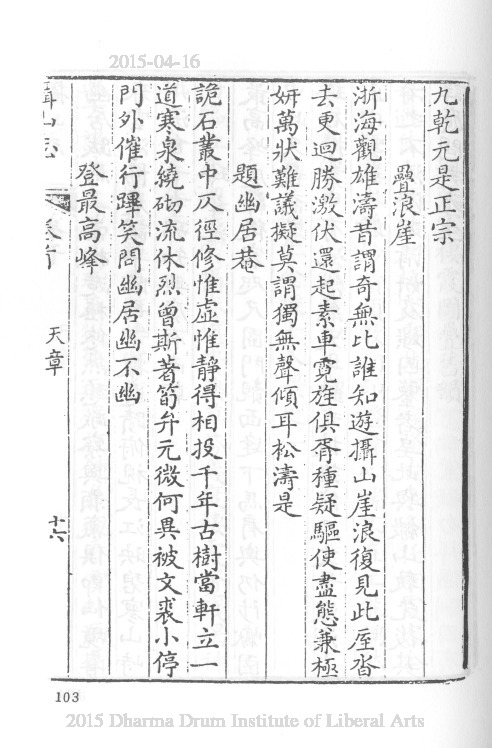 2015-04-16
九乾元是正宗
疊浪崖
浙海觀雄濤昔謂奇無比誰知遊攝山崖浪復見此厓沓
去更迴勝激伏還起素車霓旌俱胥種疑驅使盡態兼極
妍萬狀難議擬莫謂獨無聲傾耳松濤是
題幽居菴
詭石叢中仄徑修惟虛惟靜得相投千年古樹當軒立一
道寒泉繞砌流休烈曾斯著筍弁元微何異被文裘小停
門外催行蹕笑問幽居幽不幽
登最高峰
攝山志
卷首
天章
十六
103
2015 Dharma Drum Institute of Liberal Arts